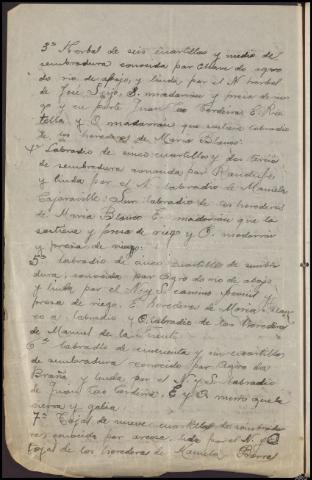 3º Herbal de seis cuartillos y medio de
sembradura conocida por Chan de agro
do rio de abajo, y linda por el N. herbal
de José Seijo, S. madarrin y presa de rie-
go y en parte Juan Cao Cordeiro, E.
y O. madarrin que sostiene labradio
de los herederos de Maria Blanco.
4º Labradio de cinco cuartillos y dos tercios
de sembradura conocida por
y linda por el N. labradio de Manuela
Sur labradio de los herederos
de Maria Blanco E. madarrin que la
sostiene y presa de riego y O. madarrin
y presa de riego.
5º Labradio de cinco cuartillos de sembra
dura, conocida por Agro do rio de abajo,
y linda por el N. y S. camino
presa de riego, E. herederos de Maria Blan
co a labradio y O. labradio de los herederos
de Manuel de la Fuente
6º labradio de cincuenta y un cuartillos
de sembradura conocido por Agro da
Braña y linda por el N. y S. labradio
de Juan Cao Cordeiro, E. y O. muro que le
cierra y
7º Tojal de nueve cuartillos de sembradu
ra, conocida por linda por el N. y O.
tojal de los herederos de Manuela